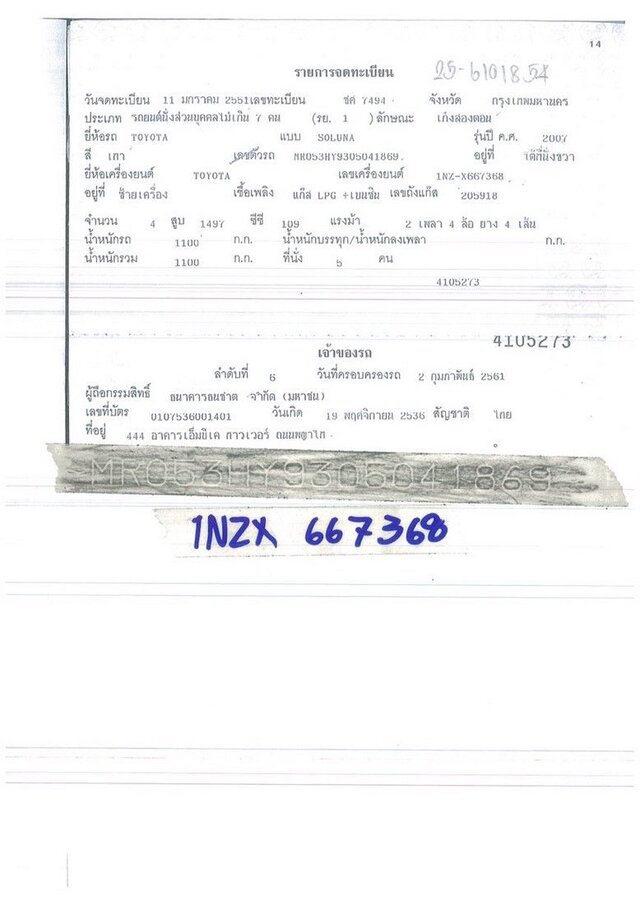 14
รายการจดทะเบียน 25-6101854
วันจดทะเบียน 11 มกราคม 2551เลขทะเบียน ชค 7494 จังหวัด กรุงเทพมหานคร
ประเภท รถยนต์นั่งส่วนบุคคลไม่เกิน 7 คน (รย. 1 )ลักษณะ เก๋งสองตอน
ยี่ห้อรถ TOYOTA แบบ SOLUNA รุ่นปี ค.ศ. 2007
สี เทา เลขตัวรถ MR053HY9305041869. อยู่ที่ ใต้ที่นั่งขวา
ยี่ห้อเครื่องยนต์ TOYOTA เลขเครื่องยนต์ 1NZ-X667368
อยู่ที่ ซ้ายเครื่อง เชื้อเพลิง แก๊ส LPG +เบนซิน เลขถังแก๊ส 205918
จำนวน 4 สูบ 1497 ซีซี 109 แรงม้า 2 เพลา 4 ล้อ ยาง 4 เส้น
น้ำหนักรถ 1100 ก.ก. น้ำหนักบรรทุก/น้ำหนักลงเพลา ก.ก.
น้ำหนักรวม 1100 ก.ก. ที่นั่ง 5 คน
4105273
4105273
เจ้าของรถ
ลำดับที่ 6 วันที่ครอบครองรถ 2 กุมภาพันธ์ 2561
ผู้ถือกรรมสิทธิ์ ธนาคารธนชาต จำกัด (มหาชน)
เลขที่บัตร 0107536001401 วันเกิด 19 พฤศจิกายน 2536 สัญชาติ ไทย
ที่อยู่ 444 อาคารเอ็มบีเค ทาวเวอร์ ถนนพญาไท
MR053HY9305041869
1NZX 667368